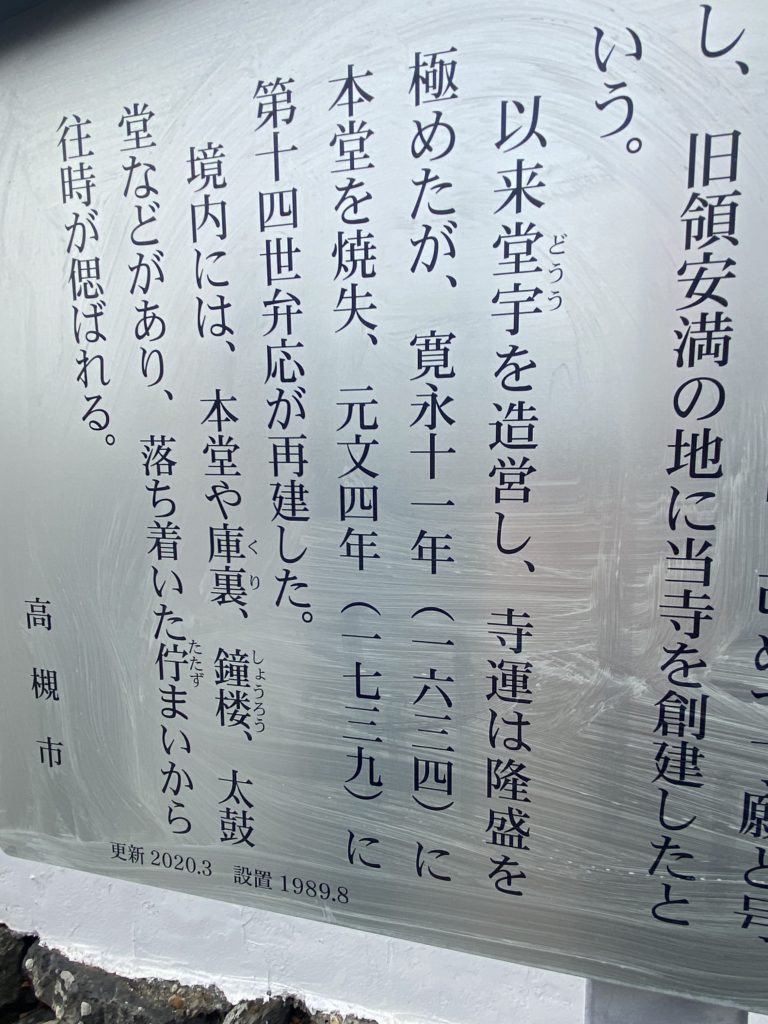 し、旧領安満の地に当寺を創建したと
いう。
以来堂宇を造営し、寺運は隆盛を
どうう
極めたが、寛永十一年（一六三四）に
本堂を焼失、元文四年（一七三九）に
第十四世弁応が再建した。
境内には、本堂や庫裏、鐘楼、太鼓
くり
しょうろう
堂などがあり、落ち着いた佇まいから
たたず
往時が偲ばれる。
高槻市
更新 2020.3 設置 1989.8